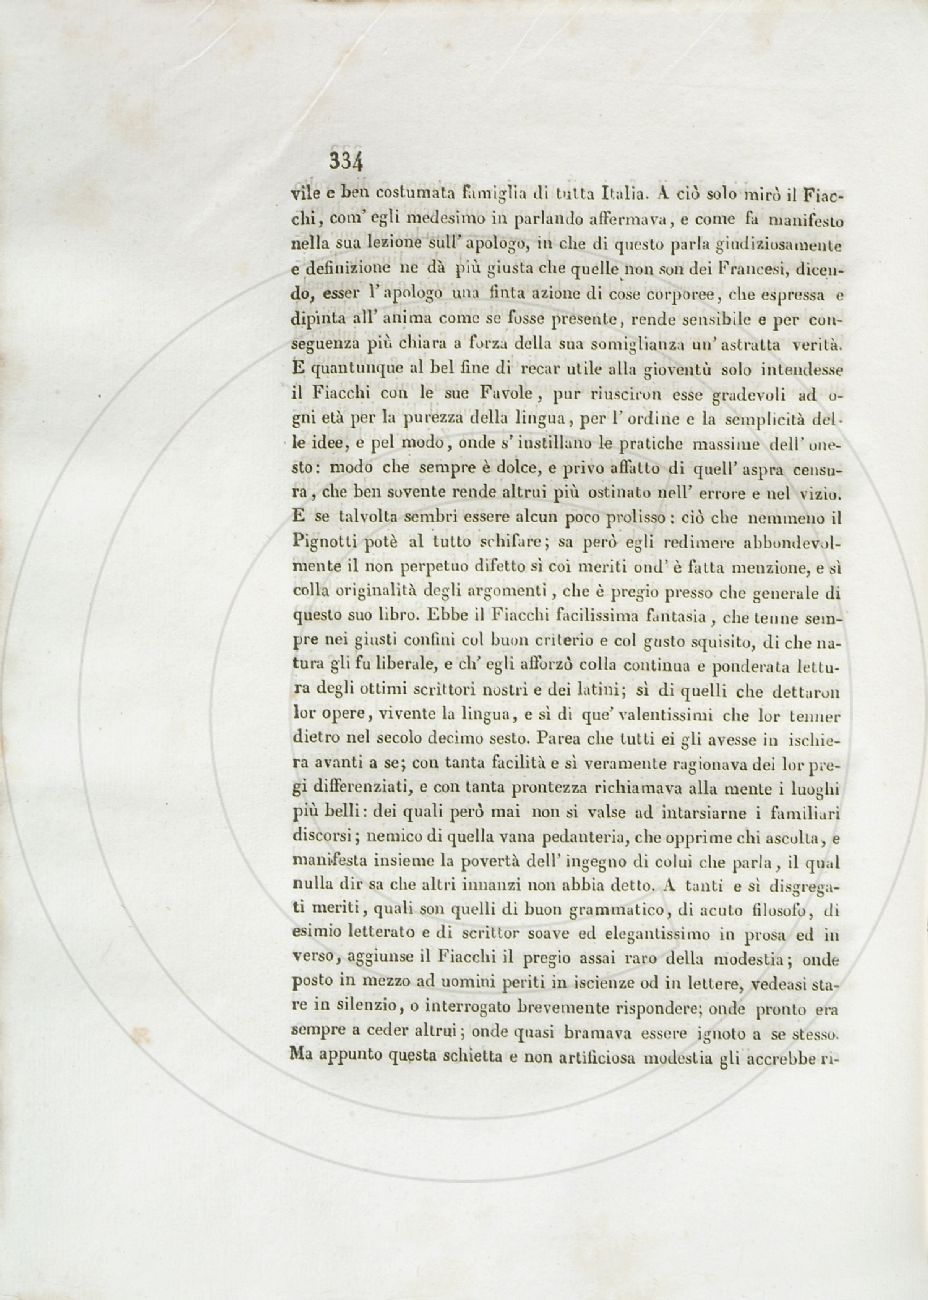 334
vile e ben costumata famiglia di tutta Italia. A ciò solo mirò il Fiac-
chi, com' egli medesimo in parlando affermava, e come fa manifesto
nella sua lezione sull' apologo, in che di questo parla giudiziosamente
e definizione ne dà più giusta che quelle non son dei Francesi, dicen-
do, esser l' apologo una finta azione di cose corporee, che espressa e
dipinta all' anima come se fosse presente, rende sensibile e per con-
seguenza più chiara a forza della sua somiglianza un' astratta verità.
E quantunque al bel fine di recar utile alla gioventù solo intendesse
il Fiacchi con le sue Favole, pur riusciron esse gradevoli ad o-
gni età per la purezza della lingua, per l' ordine e la semplicità del-
le idee, e pel modo, onde s' instillano le pratiche massime dell' one-
sto: modo che sempre è dolce, e privo affatto di quell' aspra censu-
ra, che ben sovente rende altrui più ostinato nell' errore e nel vizio.
E se talvolta sembri essere alcun poco prolisso: ciò che nemmeno il
Pignotti potè al tutto schifare; sa però egli redimere abbondevol-
mente il non perpetuo difetto sì coi meriti ond' è fatta menzione, e sì
colla originalità degli argomenti, che è pregio presso che generale di
questo suo libro. Ebbe il Fiacchi facilissima fantasia, che tenne sem-
pre nei giusti confini col buon criterio e col gusto squisito, di che na-
tura gli fu liberale, e ch' egli afforzò colla continua e ponderata lettu-
ra degli ottimi scrittori nostri e dei latini; sì di quelli che dettaron
lor opere, vivente la lingua, e sì di que' valentissimi che lor tenner
dietro nel secolo decimo sesto. Parea che tutti ei gli avesse in ischie-
ra avanti a se; con tanta facilità e sì veramente ragionava dei lor pre-
gi differenziati, e con tanta prontezza richiamava alla mente i luoghi
più belli: dei quali però mai non si valse ad intarsiarne i familiari
discorsi; nemico di quella vana pedanteria, che opprime chi ascolta, e
manifesta insieme la povertà dell' ingegno di colui che parla, il qual
nulla dir sa che altri innanzi non abbia detto. A tanti e sì disgrega-
ti meriti, quali son quelli di buon grammatico, di acuto filosofo, di
esimio letterato e di scrittor soave ed elegantissimo in prosa ed in
verso, aggiunse il Fiacchi il pregio assai raro della modestia; onde
posto in mezzo ad uomini periti in iscienze od in lettere, vedeasi sta-
re in silenzio, o interrogato brevemente rispondere; onde pronto era
sempre a ceder altrui; onde quasi bramava essere ignoto a se stesso.
Ma appunto questa schietta e non artificiosa modestia gli accrebbe ri-